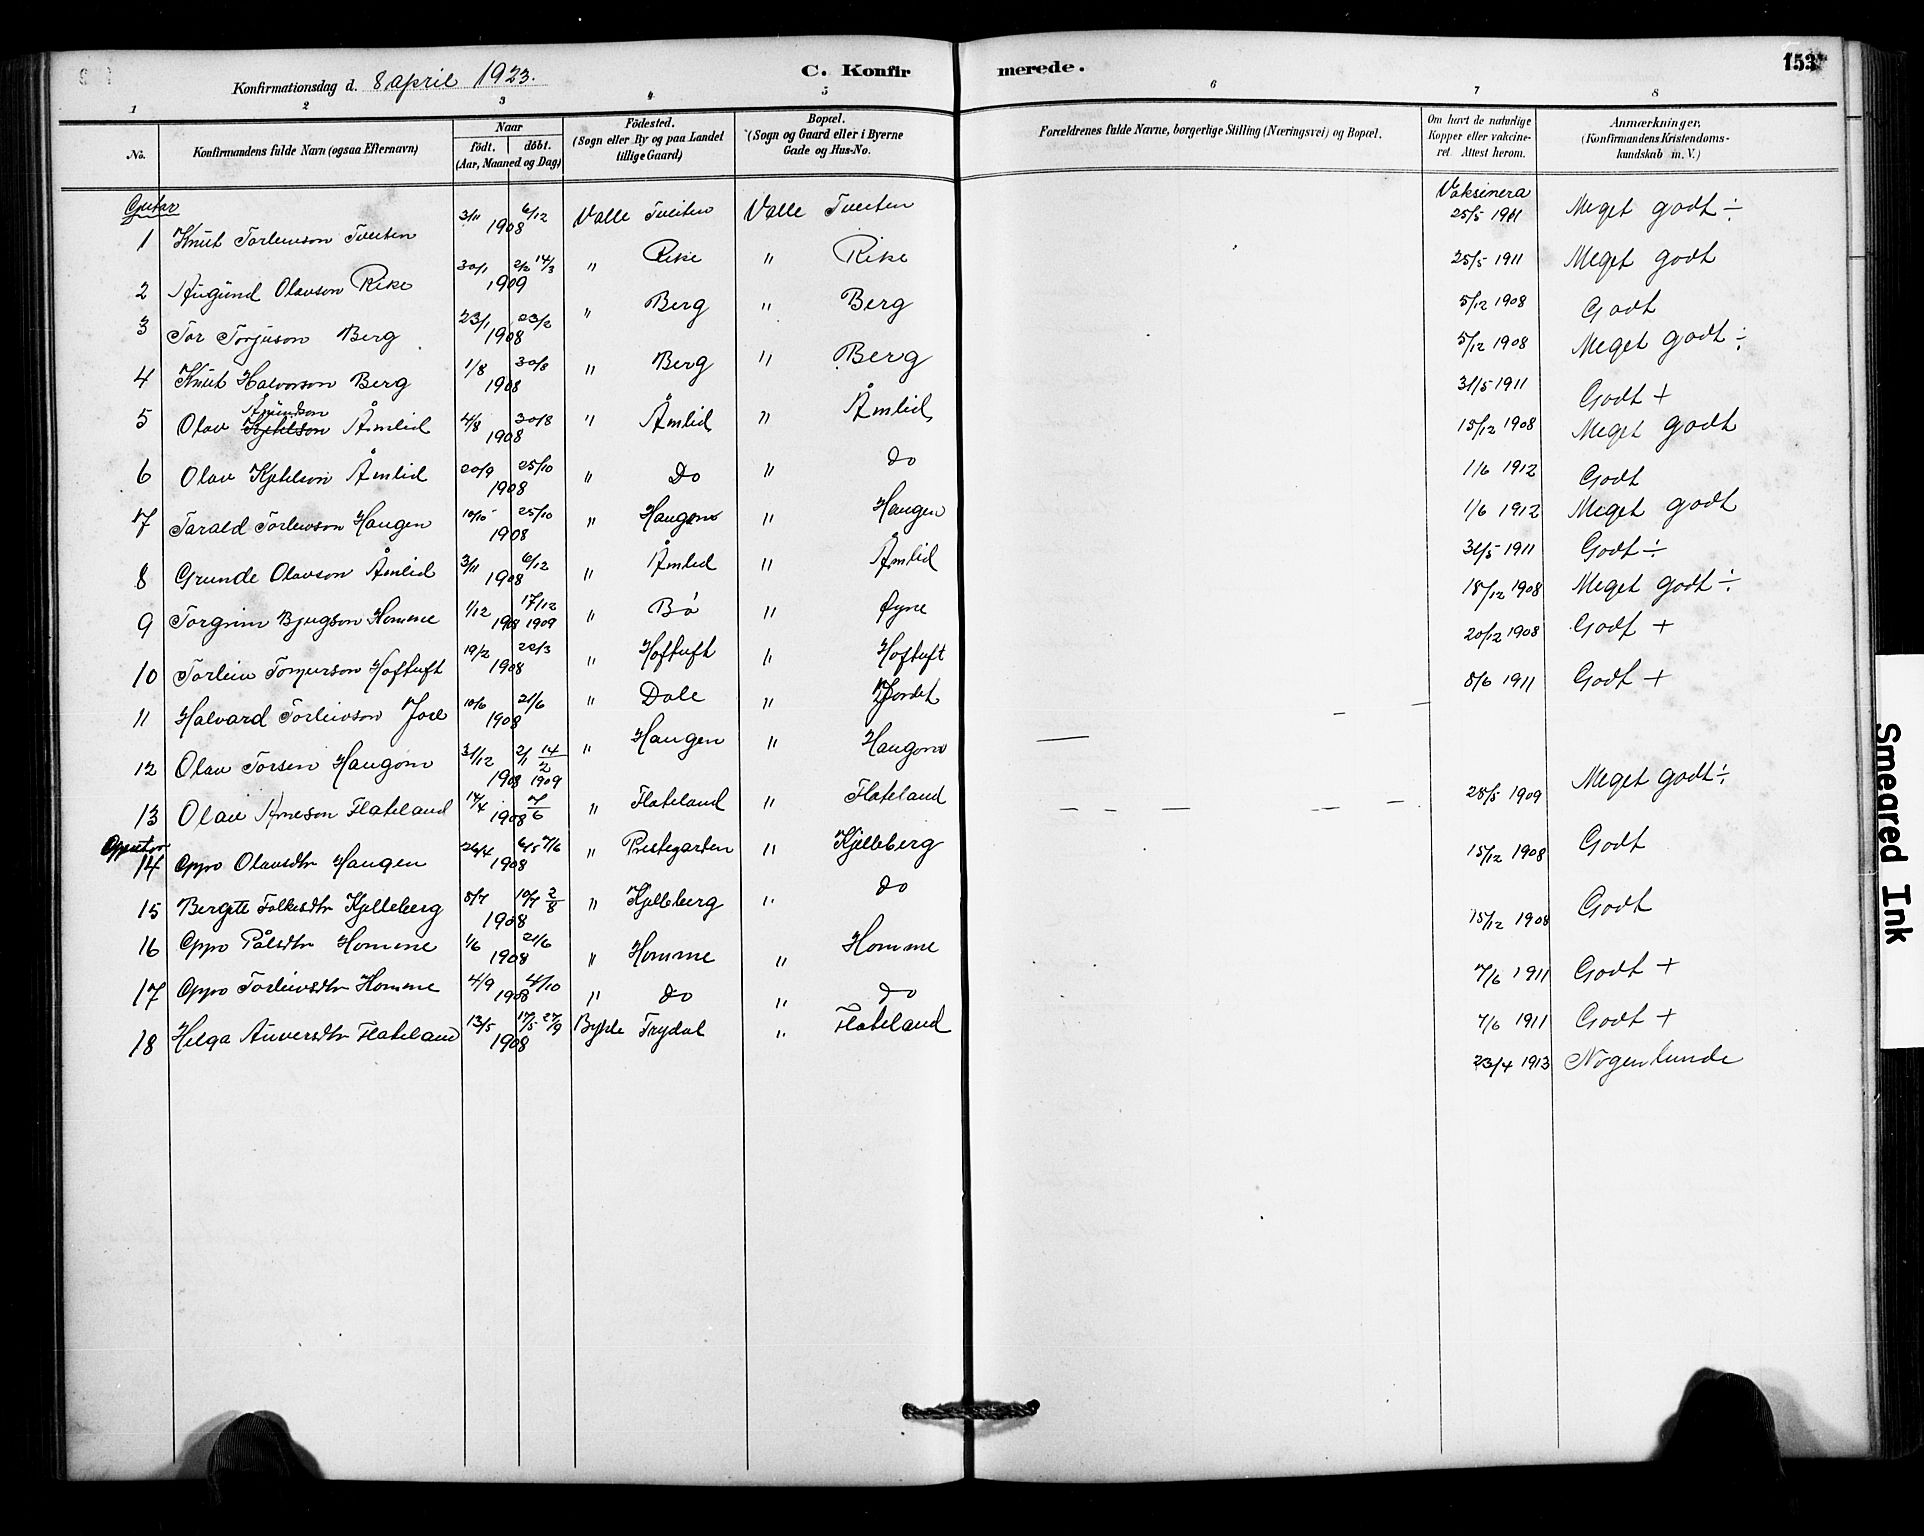 153
Konfirmationsdag d. 8 april 1923.
C. Konfirmerede.
1 2 3 4 5 6 7 8
No. | Konfirmandens fulde Navn (ogsaa Efternavn) | Naar født. døbt. (Aar, Maaned og Dag) | Fødested. (Sogn eller By og paa Landet tillige Gaard) | Bopæl. (Sogn og Gaard eller i Byerne Gade og Hus-No. | Forældrenes fulde Navne, borgerlige Stilling (Næringsvei) og Bopæl. | Om havt de naturlige Kopper eller vakcineret Attest herom. | Anmærkninger, (Konfirmandens Kristendomskundskab m. V.)
Gutar
1 Knut Torleivson Tveiten 3/11 6/12 1908 Valle Tveiten Valle Tveiten Vaksinera 25/5 1911 Meget godt ÷
2 Augund Olavson Rike 30/1 2/2 14/3 1909 " Rike " Rike 25/5 1911 Meget godt
3 Tor Torjuson Berg 23/1 23/2 1908 " Berg " Berg 5/12 1908 Godt
4 Knut Halvorson Berg 1/8 30/8 1908 " Berg " Berg 5/12 1908 Meget godt ÷
5 Olav Kjetilson Åmundson Åmlid 4/8 30/8 1908 " Åmlid " Åmlid 31/5 1911 Godt +
6 Olav Kjetilson Åmlid 20/9 25/10 1908 " Do " do 15/12 1908 Meget godt
7 Tarald Torleivson Haugen 10/10 25/10 1908 " Haugom " Haugen 1/6 1912 Godt
8 Grunde Olavson Åmlid 3/11 6/12 1908 " Åmlid " Åmlid 1/6 1912 Meget godt
9 Torgrim Bjugson Homme 1/12 17/12 1908 1909 " Bø " Øyne 31/5 1911 Godt ÷
10 Torleiv Tomjurson Hoftuft 19/2 22/3 1908 " Hoftuft " Hoftuft 18/12 1908 Meget godt ÷
11 Halvard Torleivson Jore 10/6 21/6 1908 " Dale " Jordet 20/12 1908 Godt +
12 Olav Torsen Haugom 31/12 2/1 14/2 1908 1909 " Haugen " Haugom 8/6 1911 Godt +
13 Olav Arneson Flateland 17/4 7/6 1908 " Flateland " Flateland 28/5 1909 Meget godt ÷
Gjentor
14 Gyro Olavsdtr Haugen 26/4 6/5 7/6 1908 " Prestegarden " Kjelleberg 15/12 1908 Godt
15 Bergit Folkesdtr Kjelleberg 8/7 10/7 2/8 1908 " Kjelleberg " do 15/12 1908 Godt
16 Gyro Pålsdtr Homme 1/6 21/6 1908 " Homme " Homme 7/6 1911 Godt +
17 Gyro Torleivsdtr Homme 4/9 4/10 1908 " do " do 7/6 1911 Godt +
18 Helga Auversdtr Flateland 13/5 17/5 27/9 1908 Bykle Trydal " Flateland 23/4 1913 Nogenlunde
Smeared Ink